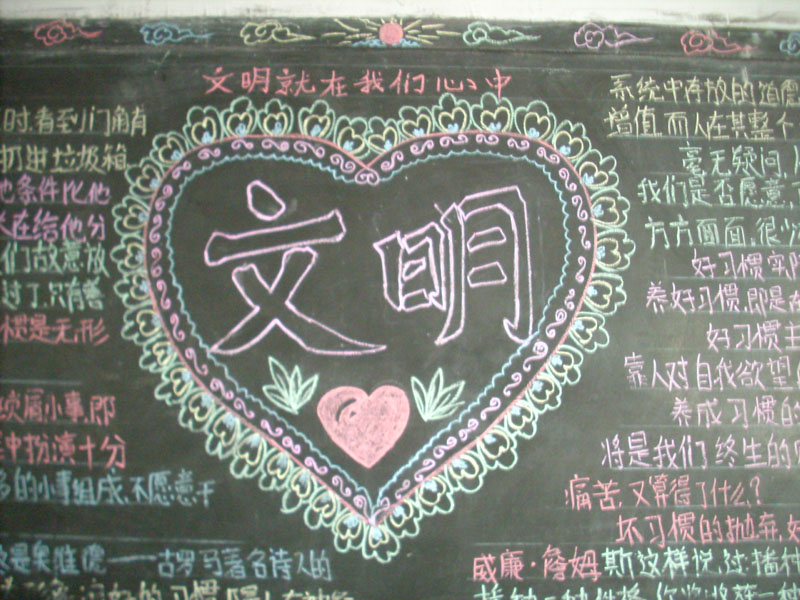 文明就在我们心中
时,看到门角有
扔进垃圾箱
条件比他
在给他分
们故意放
过了,只有意
惯是无形
琐屑小事,即
中扮演十分
的小事组成,不愿意干
是奥维德——古罗马著名诗人的
文明
系统中存放的道德
增值,而人在其整个
毫无疑问,
我们是否愿意,
方方面面,很少
好习惯实际
养好习惯,即是在
好习惯主
靠人对自我欲望
养成习惯的
将是我们终生的
痛苦,又算得了什么?
坏习惯的抛弃,好
威廉·詹姆斯这样说过:播种